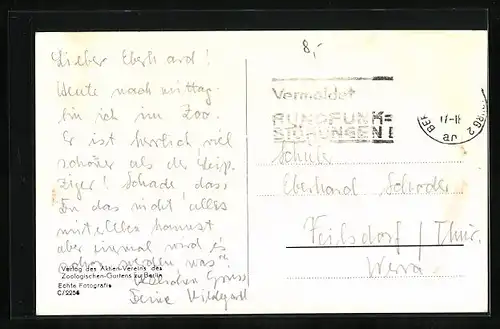 Lieber Eberhard!
Heute nachmittag
bin ich im Zoo.
Er ist herrlich viel
schöner als der Leip-
ziger! Schade das,
Du das nicht alles
miterleben kannst
aber einmal wird es
schon werden was
Herzlichen Gruss
Deine Hildegard
Verlag des Aktien-Vereins des
Zoologischen Gartens zu Berlin
Echte Fotografie
C/2254
8,-
Vermeidet
RUNDFUNK=
STÖRUNGEN!
Schüler
Eberhard Schröder
Veilsdorf / Thür.
Werra